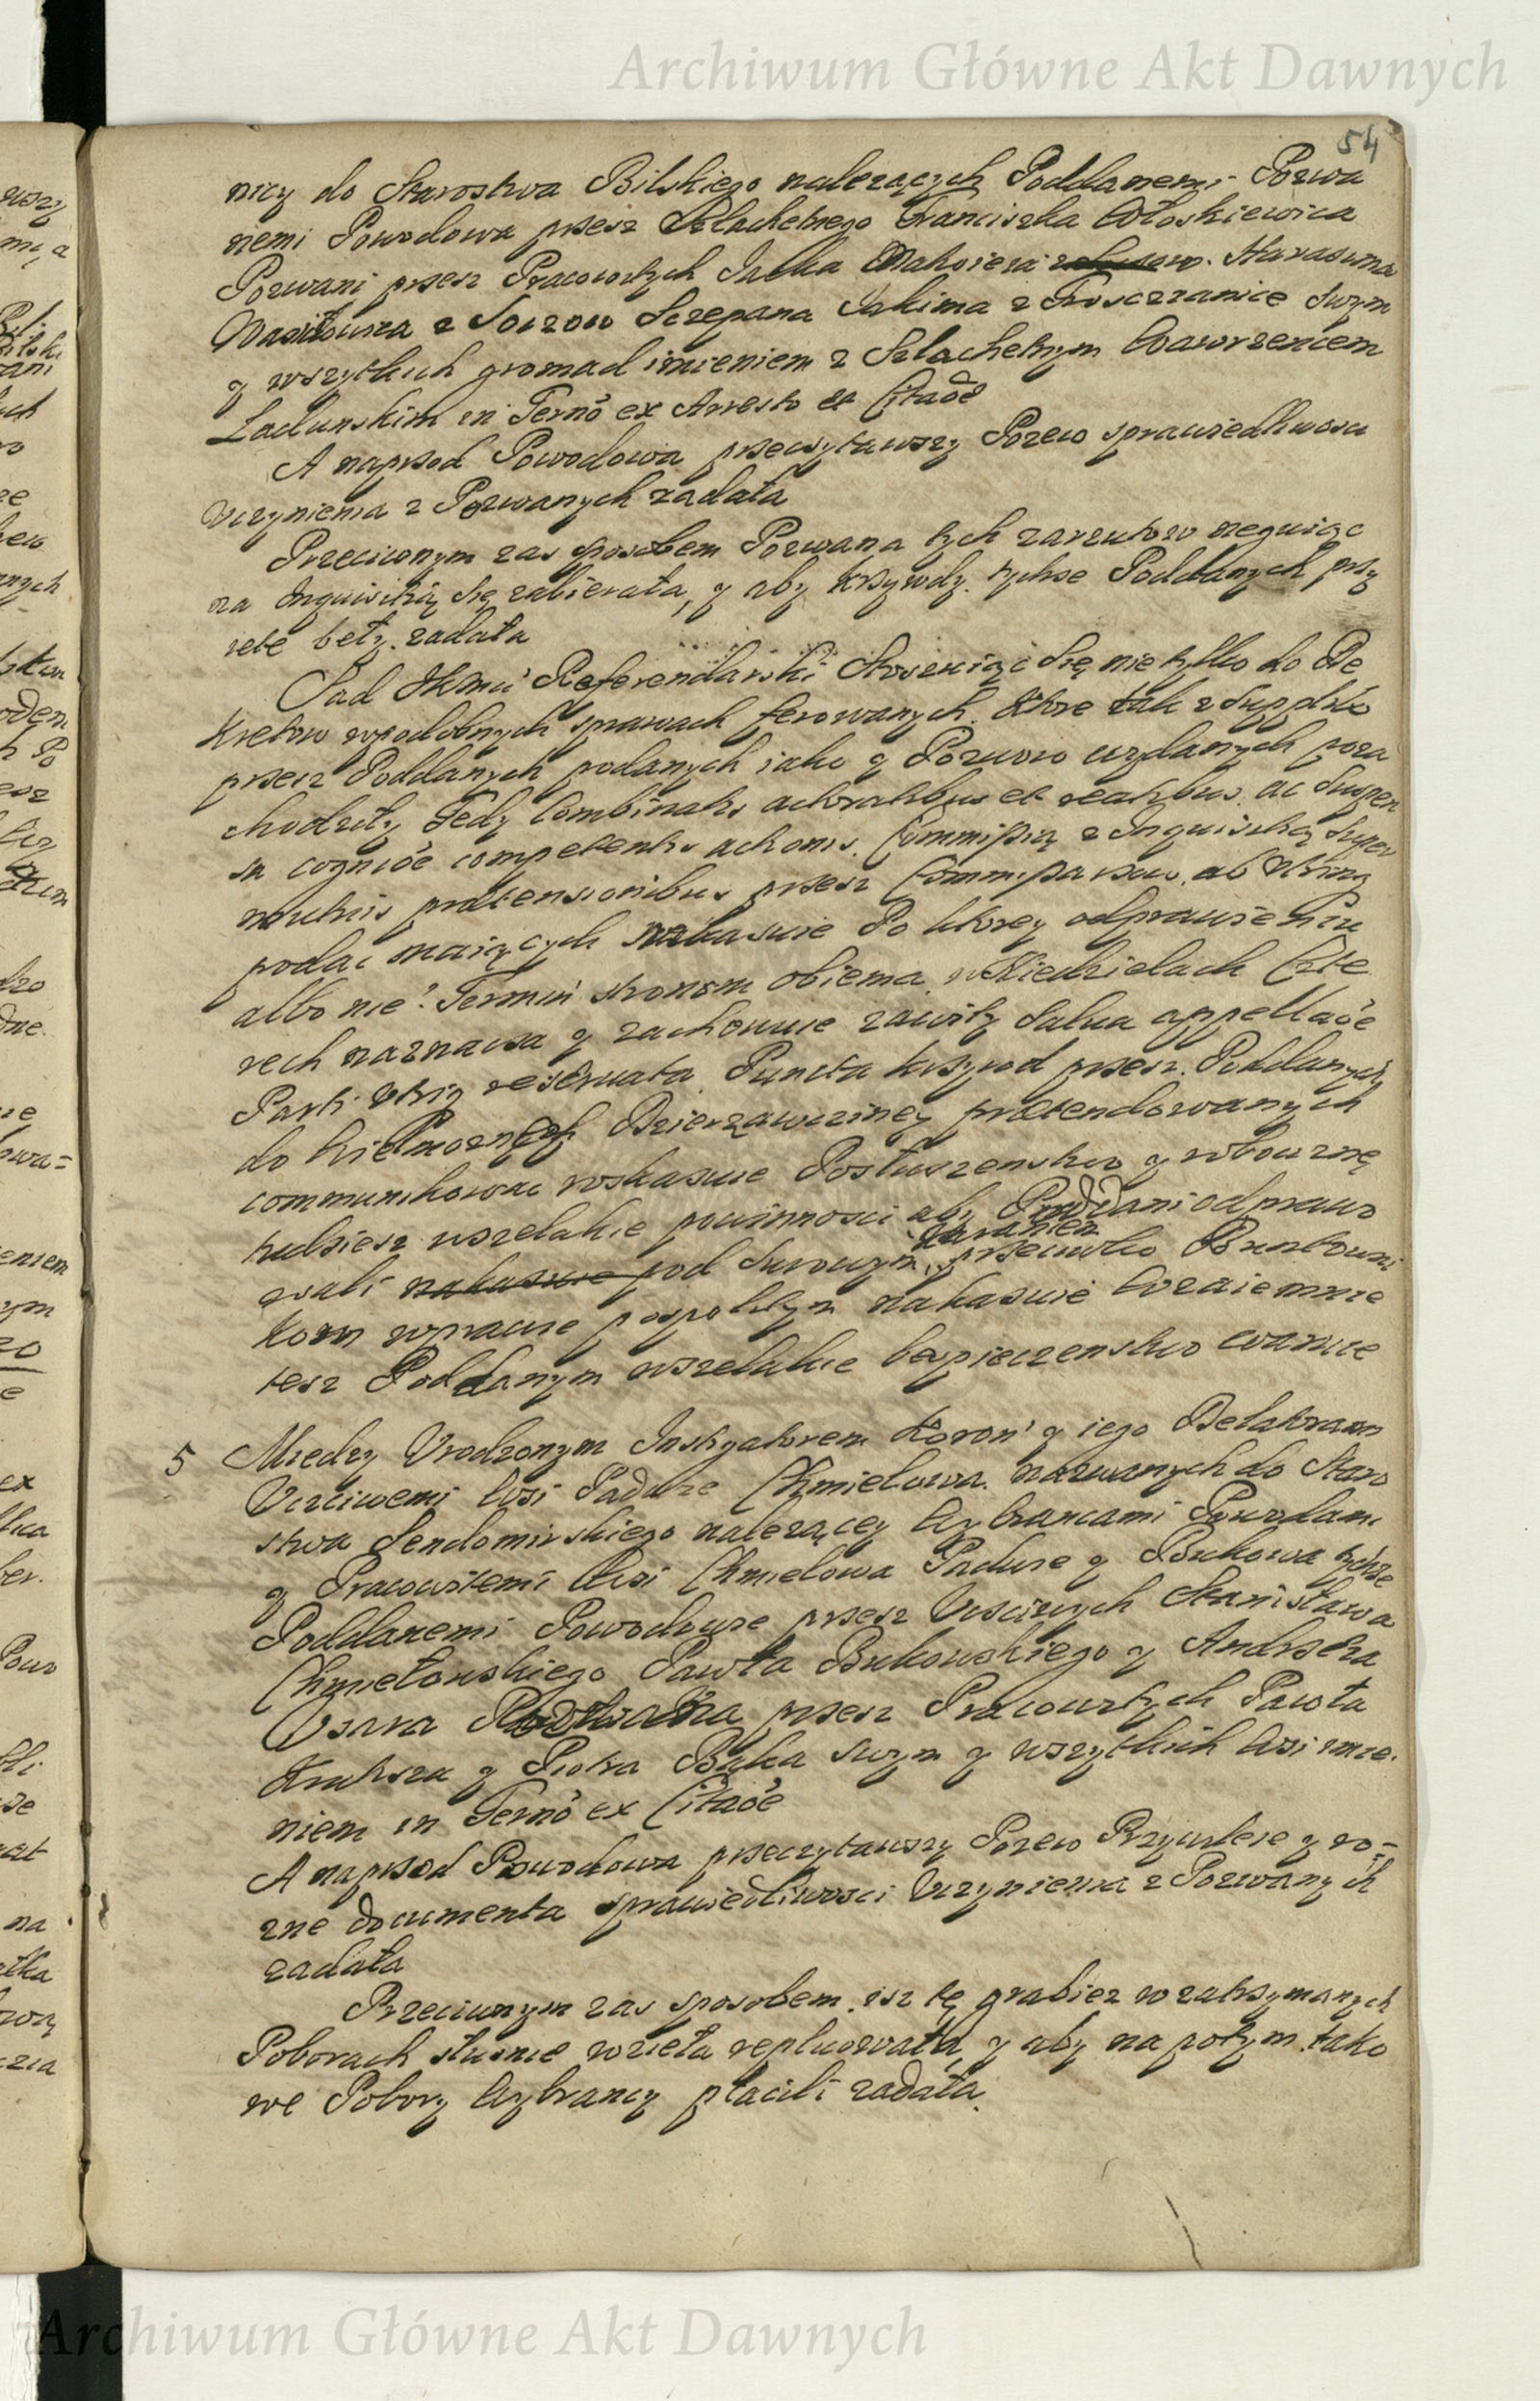 Archiwum Główne Akt Dawnych
54
nicy do Starostwa Bilskiego nalezących Poddanemi Pozwa
nemi Powodowa przez Szlachetnego Franciszka Włoskiewica
Pozwani przez Pracowitych Jacka Harasima
Wasilowza z Soczow Sczepana Jakima z Troszczanice swym
y wszytkich gromad imieniem z Szlachetnym Wawrzencem
Ladunskim in Termo ex Arresto et Citaõe
A naprzod Powodowa przeczytawszy Pozew sprawiedliwosci
Vczynienia z Pozwanych ządała
Przeciwnym zas sposobem Pozwana tych zarzutow neguiąc
na Inquisitią się zabierała, y aby krzywdy tychze Poddanych przy
sebe beły ządała
Sad JKMci Referendarski Stosuiąc się nie tylko do De
kretow wpodobnych sprawach ferowanych Ktore tak z Supplik
przez Poddanych podanych iako y Pozwow wydanych poza
chodziły Tedy Combinatis actoratibus et reatibus ac suspen
sa cogniõe competentis actionis Commissią z Inquisitią super
mutuis prætensionibus przez Commissarzow ab utrinq
podac maiących nakazuie Po ktorey odprawieniu
albo nie Termin stronom obiema w Niedzielach Czte
rech naznacza y zachowuie zawity salua appellaõe
Parti utriq reservata Puncta krzywd przez Poddanych
do Dzierzawciney prætendowanych
communikowac wskazuie Posłuszenstwo y robociznę
tudziesz wszelakie powinnosci aby Poddani odprawo
wali nakazuie pod surowym karaniem przeciwko Buntowni
kom wprawie pospolitym nakazuie Wzaiemnie
tesz Poddanym wszelakie bespieczenstwo waruie
5 Miedzy Vrodzonym Instygatorem Koron y iego Delatorami
Vczciwemi Wsi Padwie Chmielowa nazwanych do Staro
stwa Sendomirskiego nalezącey Wybrancami Powodami
y Pracowitemi Wsi Chmielowa Padwie y Bukowa tychze
Poddanemi Powodowie przez Vczciwych Stanisława
Chmielowskiego Pawła Bukowskiego y Andrzeia
przez Pracowitych Pawła
y Piotra Bąka swym y wszytkich Wsi imie
niem in Termo ex Citaõe
A naprzod Powodowa przeczytawszy Pozew Przywileie y ro=
zne documenta sprawiedliwosci Vczynienia z Pozwanych
ządała
Przeciwnym zas sposobem isz tę grabiez w zatrzymanych
Poborach słusnie wzieła replicowała, y aby na potym tako
we Pobory Wybrancy płacili ządała.
Archiwum Główne Akt Dawnych